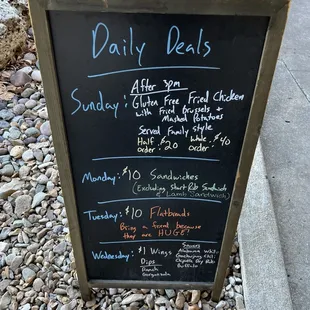 Daily Deals
After 3pm
Sunday: Gluten Free Fried Chicken
with Fried Brussels +
Mashed Potatoes
Served Family style
Half order: $20
Whole order: $40
Monday: $10 Sandwiches
(Excluding Short Rib Sandwich
& Lamb Sandwich)
Tuesday: $10 Flatbreads
Bring a friend because
they are HUGE!
Wednesday: $1 Wings
Dips
Ranch
Gorgonzola
Sauces
Alabama White
Chipotle Dry Rub
Buffalo